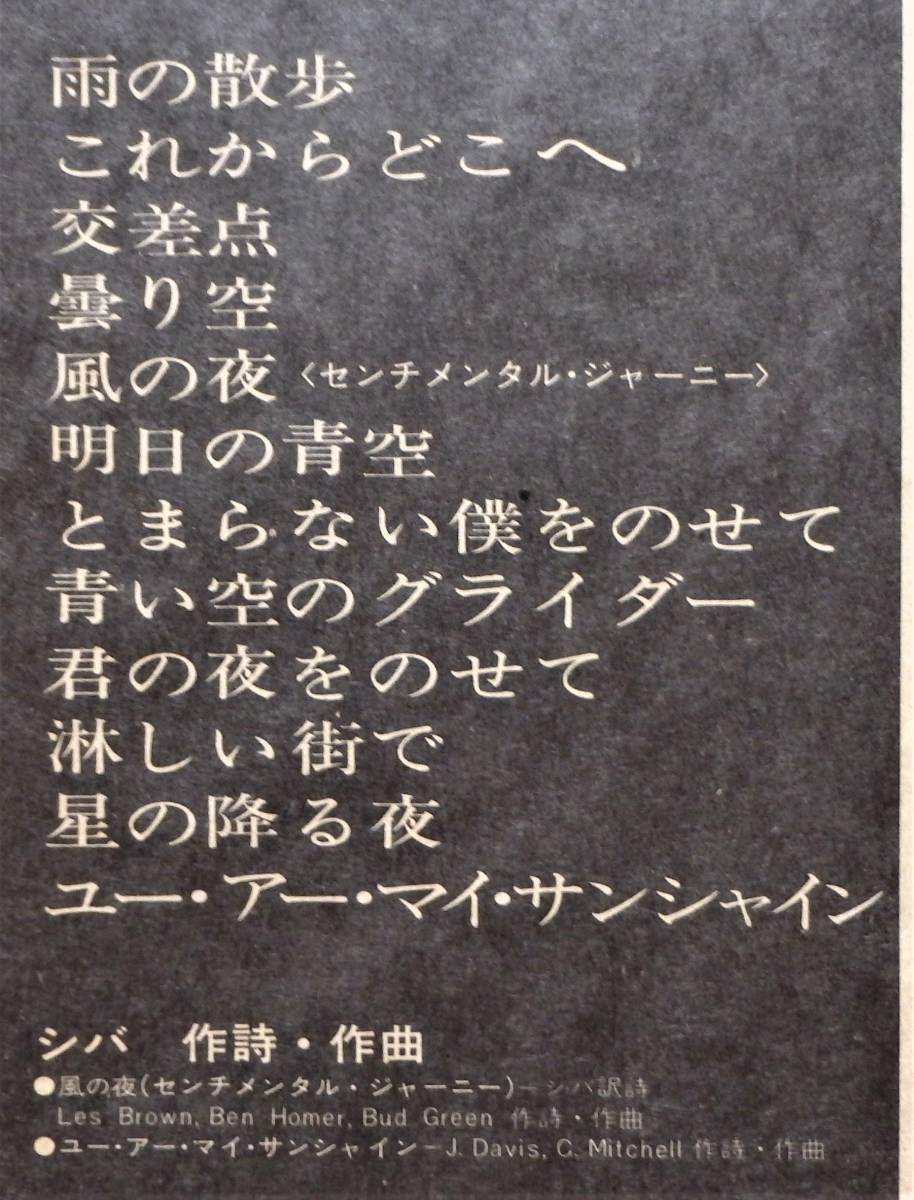 雨の散歩
これからどこへ
交差点
曇り空
風の夜〈センチメンタル・ジャーニー〉
明日の青空
とまらない僕をのせて
青い空のグライダー
君の夜をのせて
淋しい街で
星の降る夜
ユー・アー・マイ・サンシャイン
シバ 作詩・作曲
●風の夜(センチメンタル・ジャーニー)ーシバ訳詩
Les Brown, Ben Homer, Bud Green 作詩・作曲
●ユー・アー・マイ・サンシャインーJ. Davis, C. Mitchell 作詩・作曲